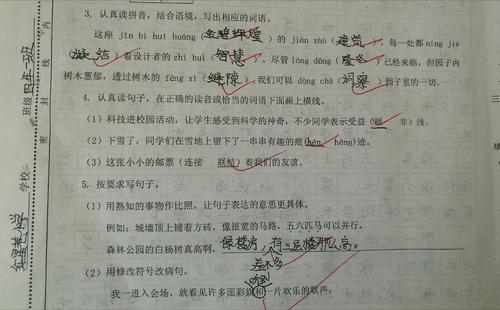 3. 认真读拼音，结合语境，写出相应的词语。
这座 jīn bì huī huáng（金碧辉煌）的 jiàn zhù（建筑），每一处都 níng jié
（凝结）着设计者的 zhì huì（智慧）。尽管 lóng dōng（隆冬）已经来临，但园子内
树木葱郁，透过树木的 fèng xì（缝隙），我们可以 dòng chá（洞察）园子里的一切。
4. 认真读句子，在正确的读音或恰当的词语下面画上横线。
（1）科技进校园活动，让学生感受到科学的神奇，不少同学表示受益（匪 非）浅。
（2）下雪了，同学们在雪地上留下了一串串有趣的痕（hén héng）迹。
（3）这张小小的邮票（连接 联结）着我们的友谊。
5. 按要求写句子。
（1）用熟知的事物作比照，让句子表达的意思更具体。
例如：城墙顶上铺着方砖，像很宽的马路，五六匹马可以并行。
森林公园的白杨树真高啊，像楼房，有三层楼那么高。
差不多
（2）用修改符号改病句。
我一进入会场，就看见许多面彩旗和一片欢乐的歌声。
班级 四年一班
学校
内
线
封
密